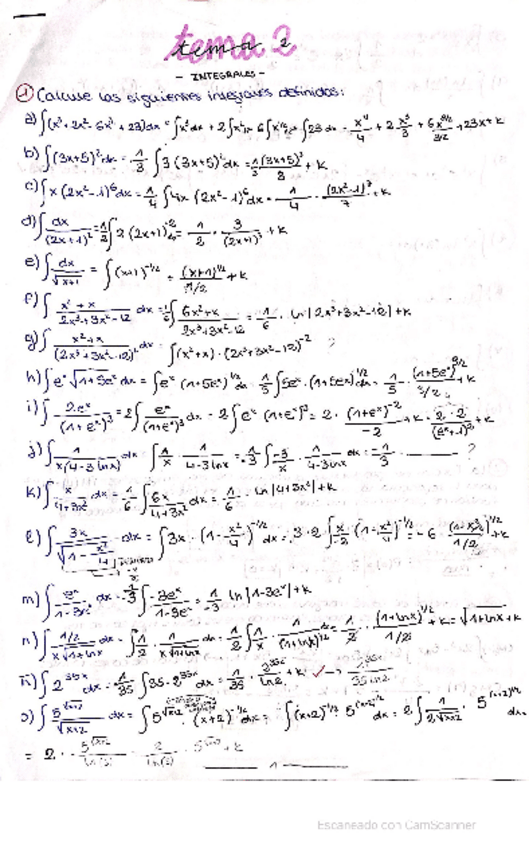 tema 2
- INTEGRALES -
① Calcule las siguientes integrales definidas:
a) ∫(x³+2x²-6x^½+23)dx = ∫x³dx + 2∫x²dx - 6∫x^½dx + ∫23dx = x⁴/4 + 2x³/3 + 6x^3/2/3/2 + 23x+k
b) ∫(3x+5)²dx = 1/3 ∫3(3x+5)²dx = 1/3 (3x+5)³/3 + k
c) ∫x(2x²-1)⁶dx = 1/4 ∫4x (2x²-1)⁶dx = 1/4 · (2x²-1)⁷/7 + k
d) ∫dx/(2x+1)² = 1/2 ∫2(2x+1)^-2 = 1/2 · 3/(2x+1)³ + k
e) ∫dx/√x+1 = ∫(x+1)^-1/2 = (x+1)^1/2/1/2 + k
f) ∫ x²+x/2x³+3x²-12 dx = 1/6 ∫ 6x²+x/2x³+3x²-12 = 1/6 · ln|2x³+3x²-12|+k
g) ∫ x²+x/(2x³+3x²-12)² dx = ∫(x²+x)·(2x³+3x²-12)^-2 ?
h) ∫eˣ√1+5eˣ dx = ∫eˣ(1+5eˣ)^1/2 dx = 1/5 ∫5eˣ·(1+5eˣ)^1/2 dx = 1/5 · (1+5eˣ)^3/2/3/2 + k
i) ∫ 2eˣ/(1+eˣ)³ = 2∫ eˣ/(1+eˣ)³ dx = 2∫eˣ(1+eˣ)^-3 = 2 · (1+eˣ)^-2/-2 + k
j) ∫ 1/x(4-3lnx) dx = ∫ 1/x · 1/4-3lnx = 1/3 ∫ -3/x · 1/4-3lnx dx = -1/3 · ?
k) ∫ x/4+3x² dx = 1/6 ∫ 6x/4+3x² = 1/6 · ln|4+3x²|+k
l) ∫ 3x/√1-x²/4 dx = ∫3x · (1-x²/4)^-1/2 dx = 3·2∫ x/2 (1-x²/4)^-1/2 = -6 · (1-x²/4)^1/2/1/2 + k
m) ∫ eˣ/1-3eˣ dx = 1/3 ∫ -3eˣ/1-3eˣ = 1/-3 ln|1-3eˣ|+k
n) ∫ 1/2/x√1+lnx dx = ∫ 1/2 · 1/x√1+lnx dx = 1/2 ∫ 1/x · 1/(1+lnx)^1/2 dx = 1/2 · (1+lnx)^1/2/1/2 + k = √1+lnx+k
ñ) ∫2^35x dx = 1/35 ∫35·2^35x dx = 1/35 · 2^35x/ln2 + k ✓ → 2^35x/35ln2
o) ∫ 5^√x+2/√x+2 dx = ∫5^√x+2 · (x+2)^-1/2 dx = ∫(x+2)^-1/2 · 5^(x+2)^1/2 dx = 2∫ 1/2√x+2 · 5^(x+2)^1/2 dx
= 2 · 5^√x+2
Escaneado con CamScanner